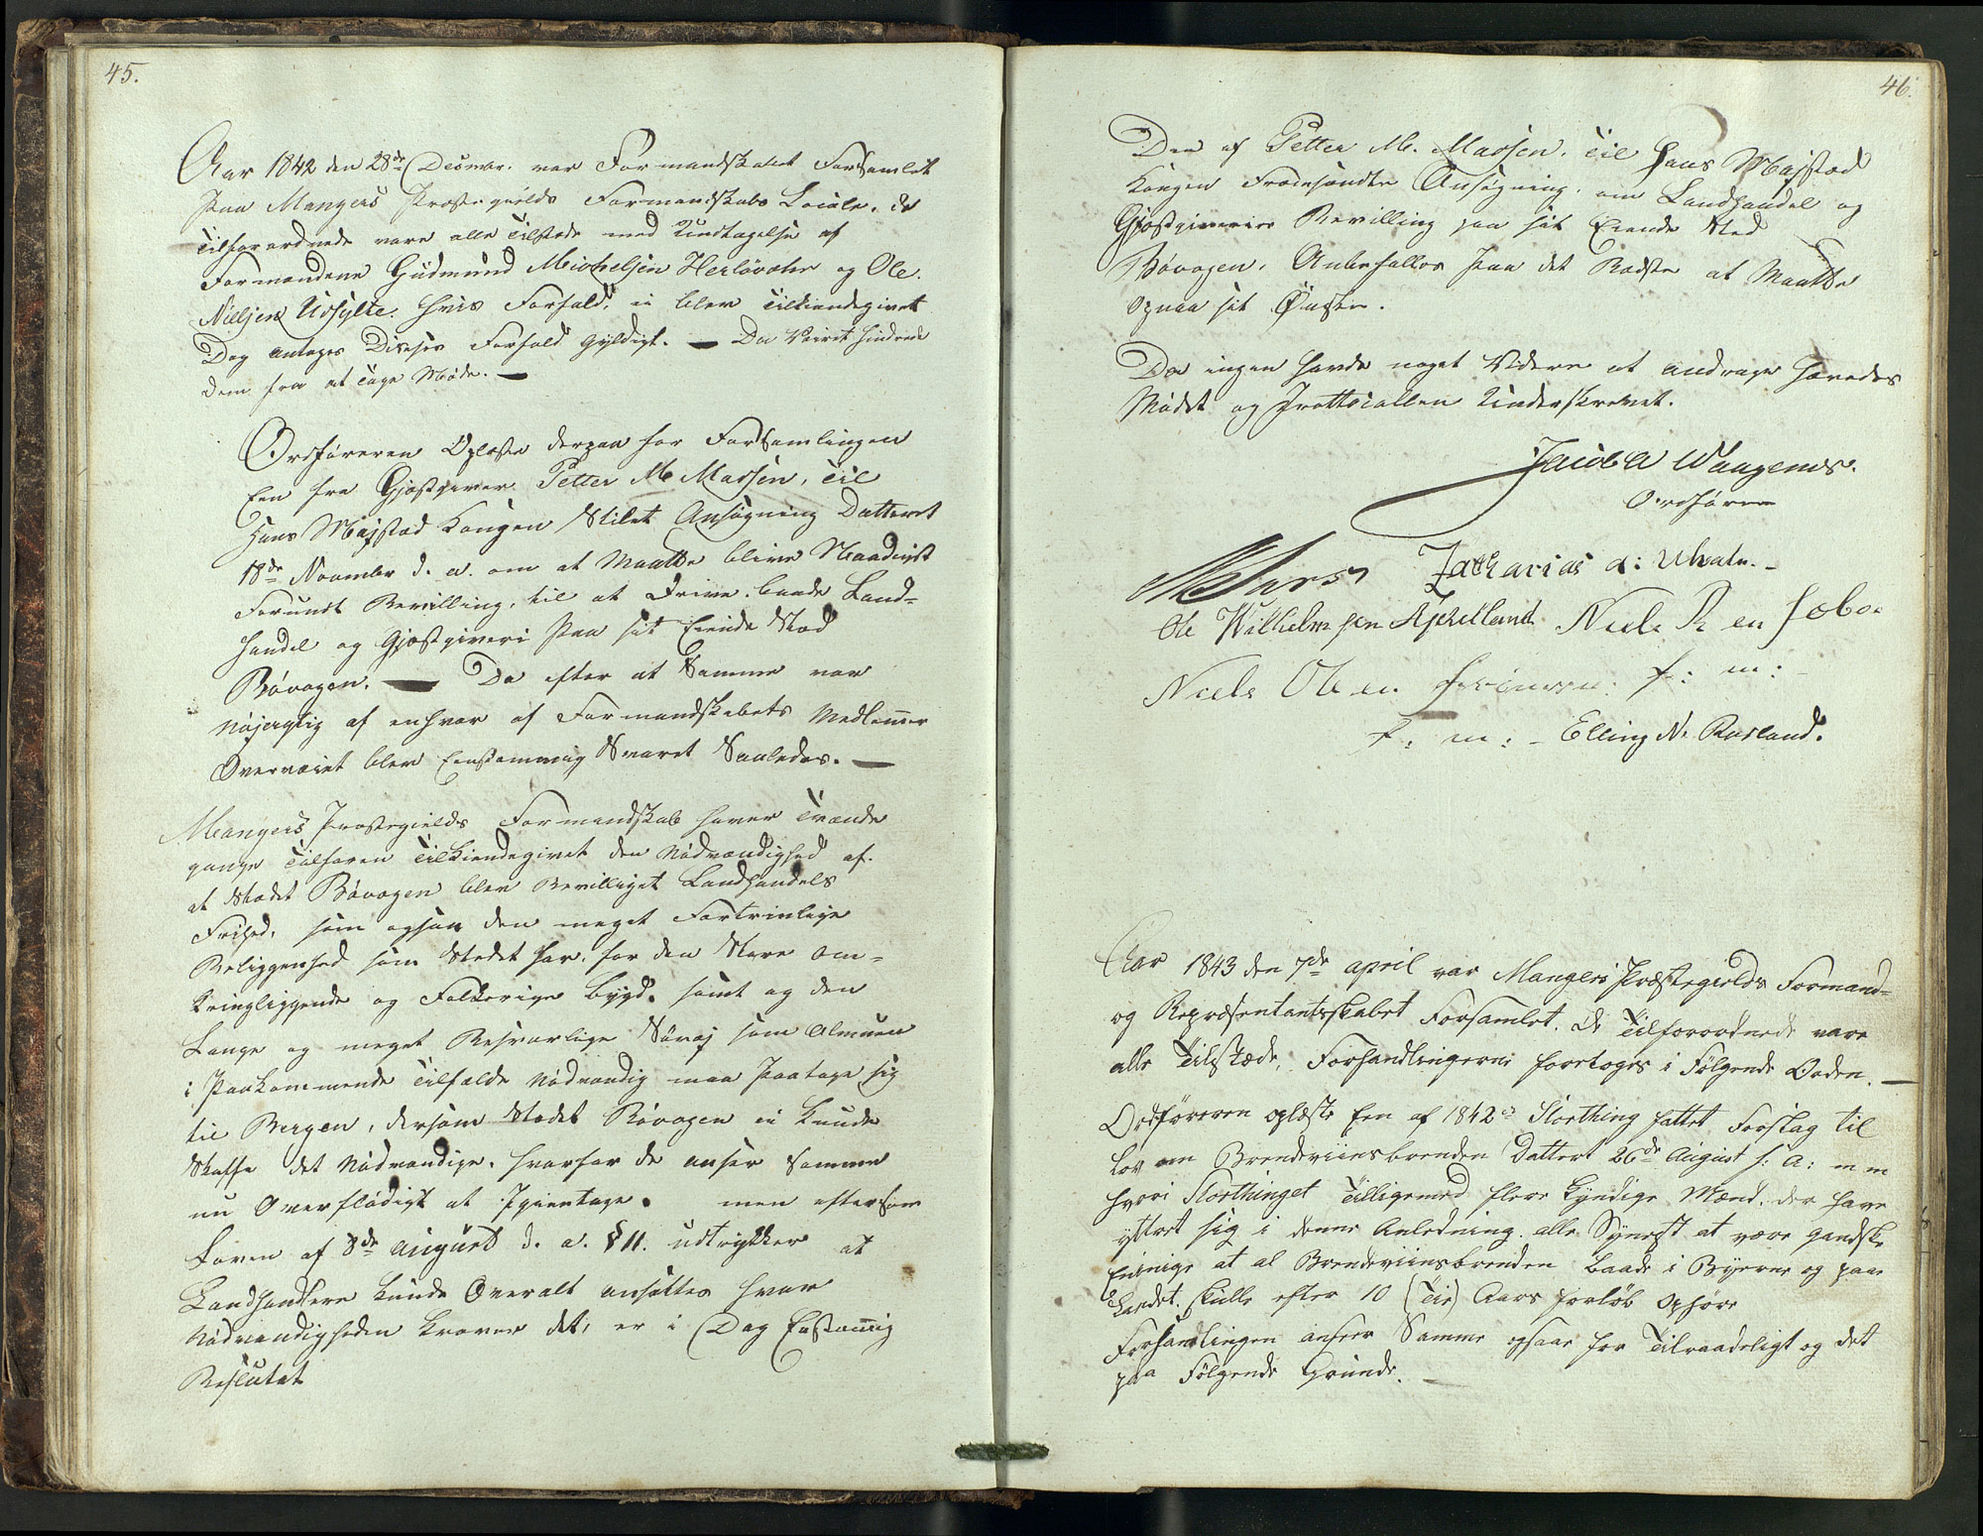 45.
Aar 1842 den 28de Decmbr. var Formandskabet Forsamlet
paa Mangers Prestegields Formandskabs Locale. de
Tilforordnede vare alle Tilstede med Undtagelse af
Formændene Gudmund Michelsen Herløvær og Ole
Nielsen Uthylte. hvis Forfald ei blev Tilkiendegivet
Dog antages Disses Forfald gyldigt. — Da Veiret hindrede
dem fra at Tage Møde. —
Ordføreren Oplæste derpaa for Forsamlingen
Een fra Gjæstgiver Petter M Madsen, til
Hans Majstæd Kongen Stilet Ansøgning Datteret
18de Novembr d. a. om at Maatte blive Naadigst
Forundt Bevilling, til at Drive baade Land=
handel og Gjæstgiveri paa sit Eiende Stæd
Bøvogen. — Da efter at Samme var
Nøjagtig af enhver af Formandskabets Medlemmer
Overveiet blev Eenstemmig Svaret Saaledes. —
Mangers Prestegields Formandskab haver Tvende
gange Tilforen Tilkiendegivet den Nødvendighed af.
at Stædet Bøvogen blev Bevilliget Landhandels
Frihed, som ogsaa den meget Fortrinlige
Beliggenhed som Stedet har, for den Store om=
kringliggende og Folkerige Bygd. samt og den
Lange og meget Besværlige Søvej som Almuen
i Paakommende Tilfælde Nødvendig maa paatage sig
til Bergen, dersom Stædet Bøvogen ei kunde
Skaffe det Nødvendige. hvorfor de anseer Samme
nu Overflødigt at Igientage. men eftersom
Loven af 8de August d. a. § 11. udtrykker at
Landhandlere kunde Overalt ansættes hvor
Nødvendigheden kræver det, er i Dag Enstemig
Besluttet
46.
Den af Petter M. Madsen. til Hans Majstæd
Kongen Fremsendte Ansøgning. om Landhandel og
Gjæstgiveries Bevilling paa sit Eiende Sted
Bøvogen, Anbefalles paa det Bedste at Maatte
opnaa sit Ønske.
Da ingen havde noget Videre at andrage hævedes
Mødet og Prottocallen Underskrevet.
Jacob A Waagenes.
Ordfører
Zacharias A: Uhatn. -
Ole Wilhelmsen Kjelilland Niels R en Sæbø
Niels Olsen f: m:
f: m: - Elling N. Rasland.
Aar 1843 den 7de april var Mangers Præstegields Formand=
og Repræsentantsskabet Forsamlet. De Tilforordnede vare
alle Tilstæde, Forhandlingerne foretoges i Følgende Orden. —
Ordføreren oplæste Een af 1842s Storthing fattet Forslag til
Lov om Brendeviinsbrenden Dattert 26de August f: A: m m
hvori Storthinget Tilligemed flere kyndige Mænd. der have
yttret sig i denne Anledning. alle Synest at være gandske
Eninige at al Brendeviinsbrenden baade i Byerne og paa
Landet. Skulle efter 10 (Tie) Aars forløb Ophøre
Forhandlingen anseer Samme ogsaa for Tilraadeligt og det
paa Følgende Grunde. —